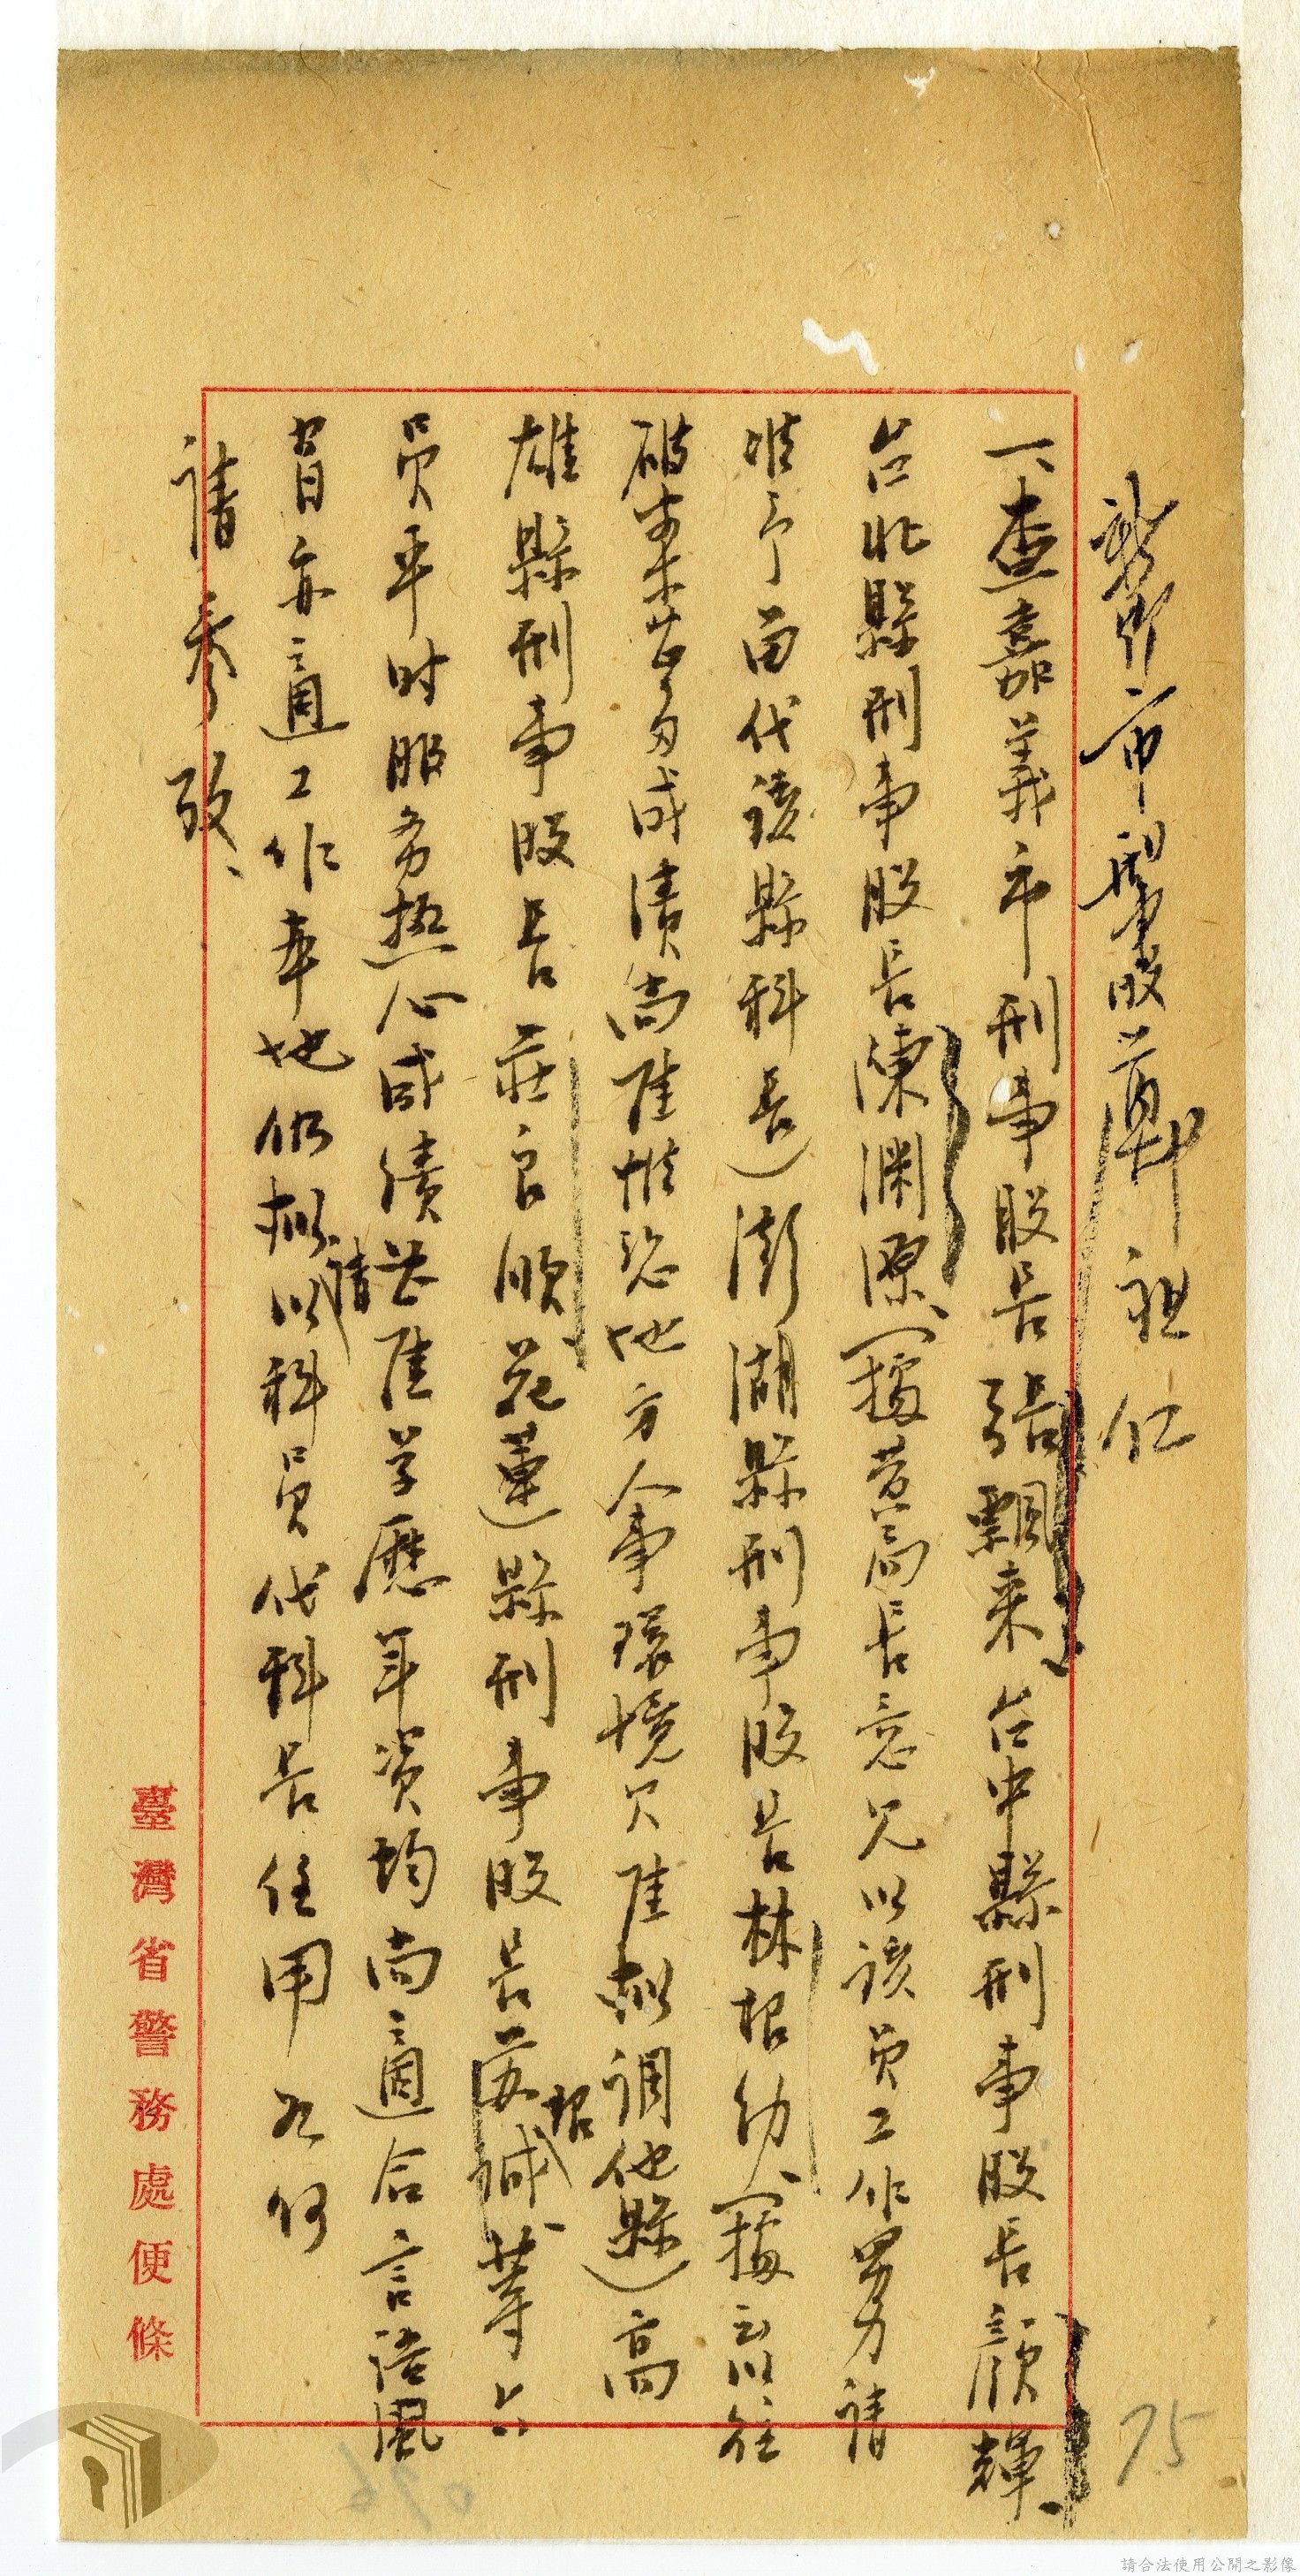 新竹市刑事股薛祖仁
一、查嘉義市刑事股長張飄来、台中縣刑事股長顏輝、
台北縣刑事股長陳淵源、(據黃局長意見以該員工作努力請
准予留代該縣科長)澎湖縣刑事股長林招幼、(據言以往
破案甚多成績尚佳惟恐地方人事環境欠佳擬調他縣)高
雄縣刑事股長莊良順花蓮縣刑事股長黃招誠等六
員平时服务热心成績甚佳学歷年資均尚適合言語風
習亦適工作本地似擬請以科員代科長任用為何
請參改、
臺灣省警務處便條
75
036
請合法使用公開之影像